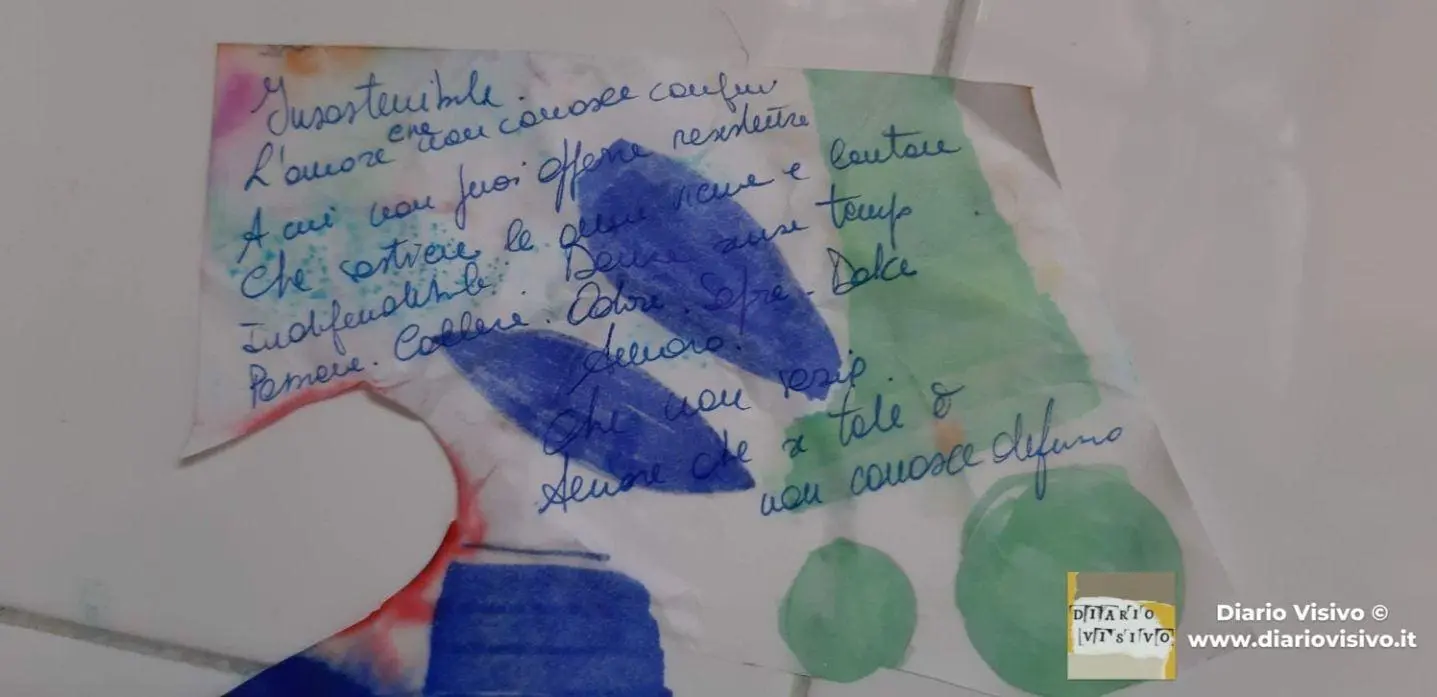 Insostenibile.
L'amore che non conosce confini
A cui non puoi offrire resistenze
Che sostiene le anime vicine e lontane
Indifendibile. Danza senza tempo
Passione. Collera. Odore. Sapore. Dolce
Amaro.
Che non
Amore che x tale è
non conosce
DIARIO
VISIVO
Diario Visivo ©
www.diariovisivo.it